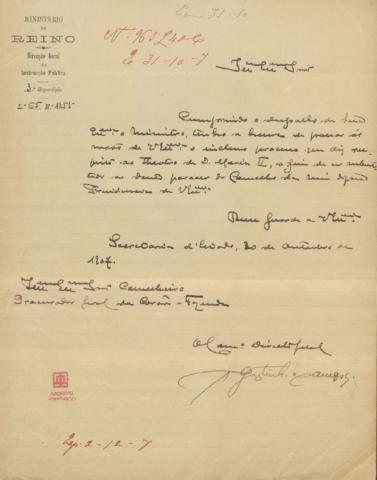 Com 31-10
MINISTERIO
DO
REINO
Direcção Geral
da
Instrucção Publica
3.ª Repartição
L.º 65 N.º
Nº 965 L 40-C
E 31-10-7
Ill.mo Ex.mo Snr
Cumprindo o despacho de Sua
Ex.cia o Ministro, tenho a honra de passar ás
mãos de V.Ex.cia o incluso processo que diz res-
peito ao Theatro de D. Maria II, a fim de ser submet-
tido ao douto parecer da
de V.Ex.cia
Deus Guarde a V.Ex.cia
Secretaria d'Estado, 30 de outubro de
1907.
Ill.mo Ex.mo Snr. Conselheiro
Procurador Geral da Corôa e Fazenda
O Director Geral
ARQUIVO
HISTÓRICO
Exp. 2-12-7